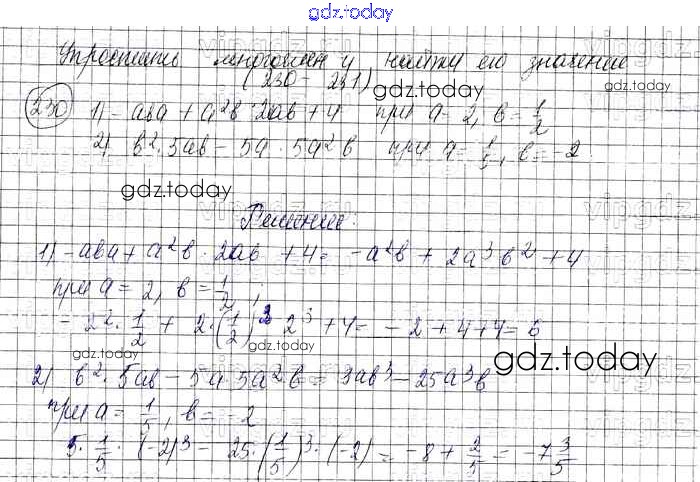 gdz.today
Упростить многочлен и найти его значение
(230 - 231)
gdz.today
230 1) -aba + a²b · 2ab + 4 при a = 2, b = 1/2
2) b² · 5ab - 5a · 5a²b при a = 1/5, b = -2
gdz.today
Решение:
1) -aba + a²b · 2ab + 4 = -a²b + 2a³b² + 4
при a = 2, b = 1/2;
- 2² · 1/2 + 2 · (1/2)² · 2³ + 4 = -2 + 4 + 4 = 6
gdz.today gdz.today gdz.today
2) b² · 5ab - 5a · 5a²b = 5ab³ - 25a³b
при a = 1/5, b = -2
5 · 1/5 · (-2)³ - 25 · (1/5)³ · (-2) = -8 + 2/5 = -7 3/5